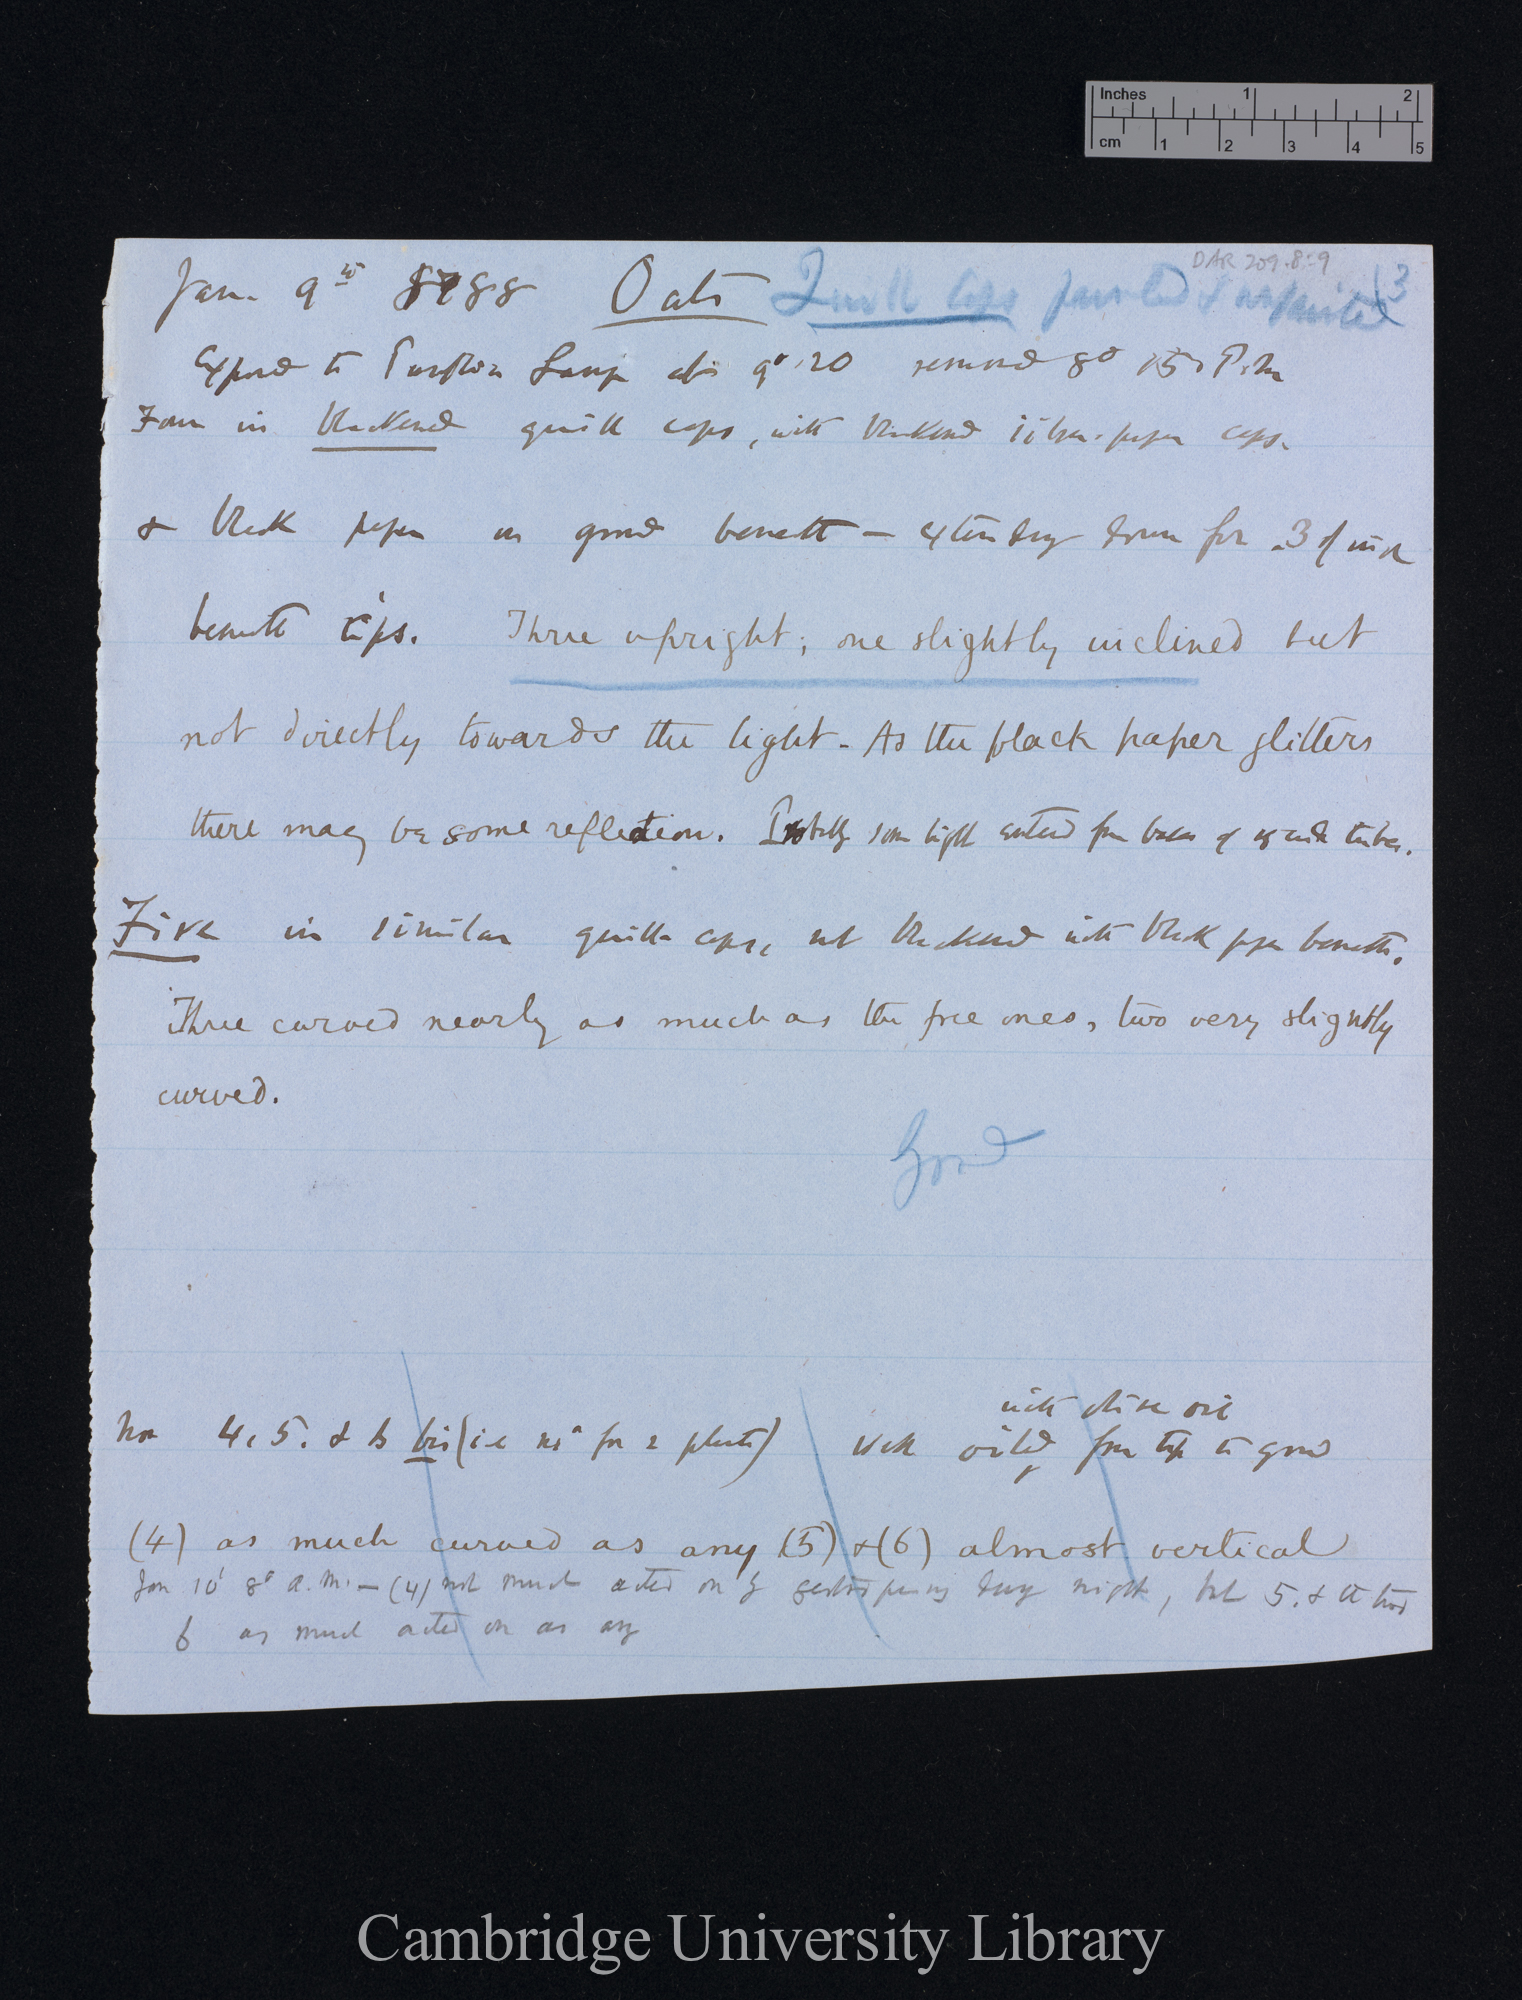 Inches 1 2
cm 1 2 3 4 5
DAR 209.8:9
Jan. 9th Oats Quill caps painted & unpainted 13
Exposed to Paraffin Lamp at 9° 20 removed 8° 15' P.m
Four in blackened quill caps, with blackened paper caps.
& black paper on ground beneath — extending down for .3 of inch
beneath tips. Three upright; one slightly inclined but
not directly towards the light. As the black paper glitters
there may be some reflection. Probably some light entered from bases of tubes.
Five in similar quill caps, not blackened with black paper beneath.
Three curved nearly as much as the free ones, two very slightly
curved.
Good
with olive oil
Nos 4, 5. & 6 bis (i.e no for 2 plants) well oiled from tip to ground
(4) as much curved as any (5) & (6) almost vertical
Jan 10' 8° a.m. — (4) not much acted on by geotropism during night, but 5. & the two
6 as much acted on as any
Cambridge University Library